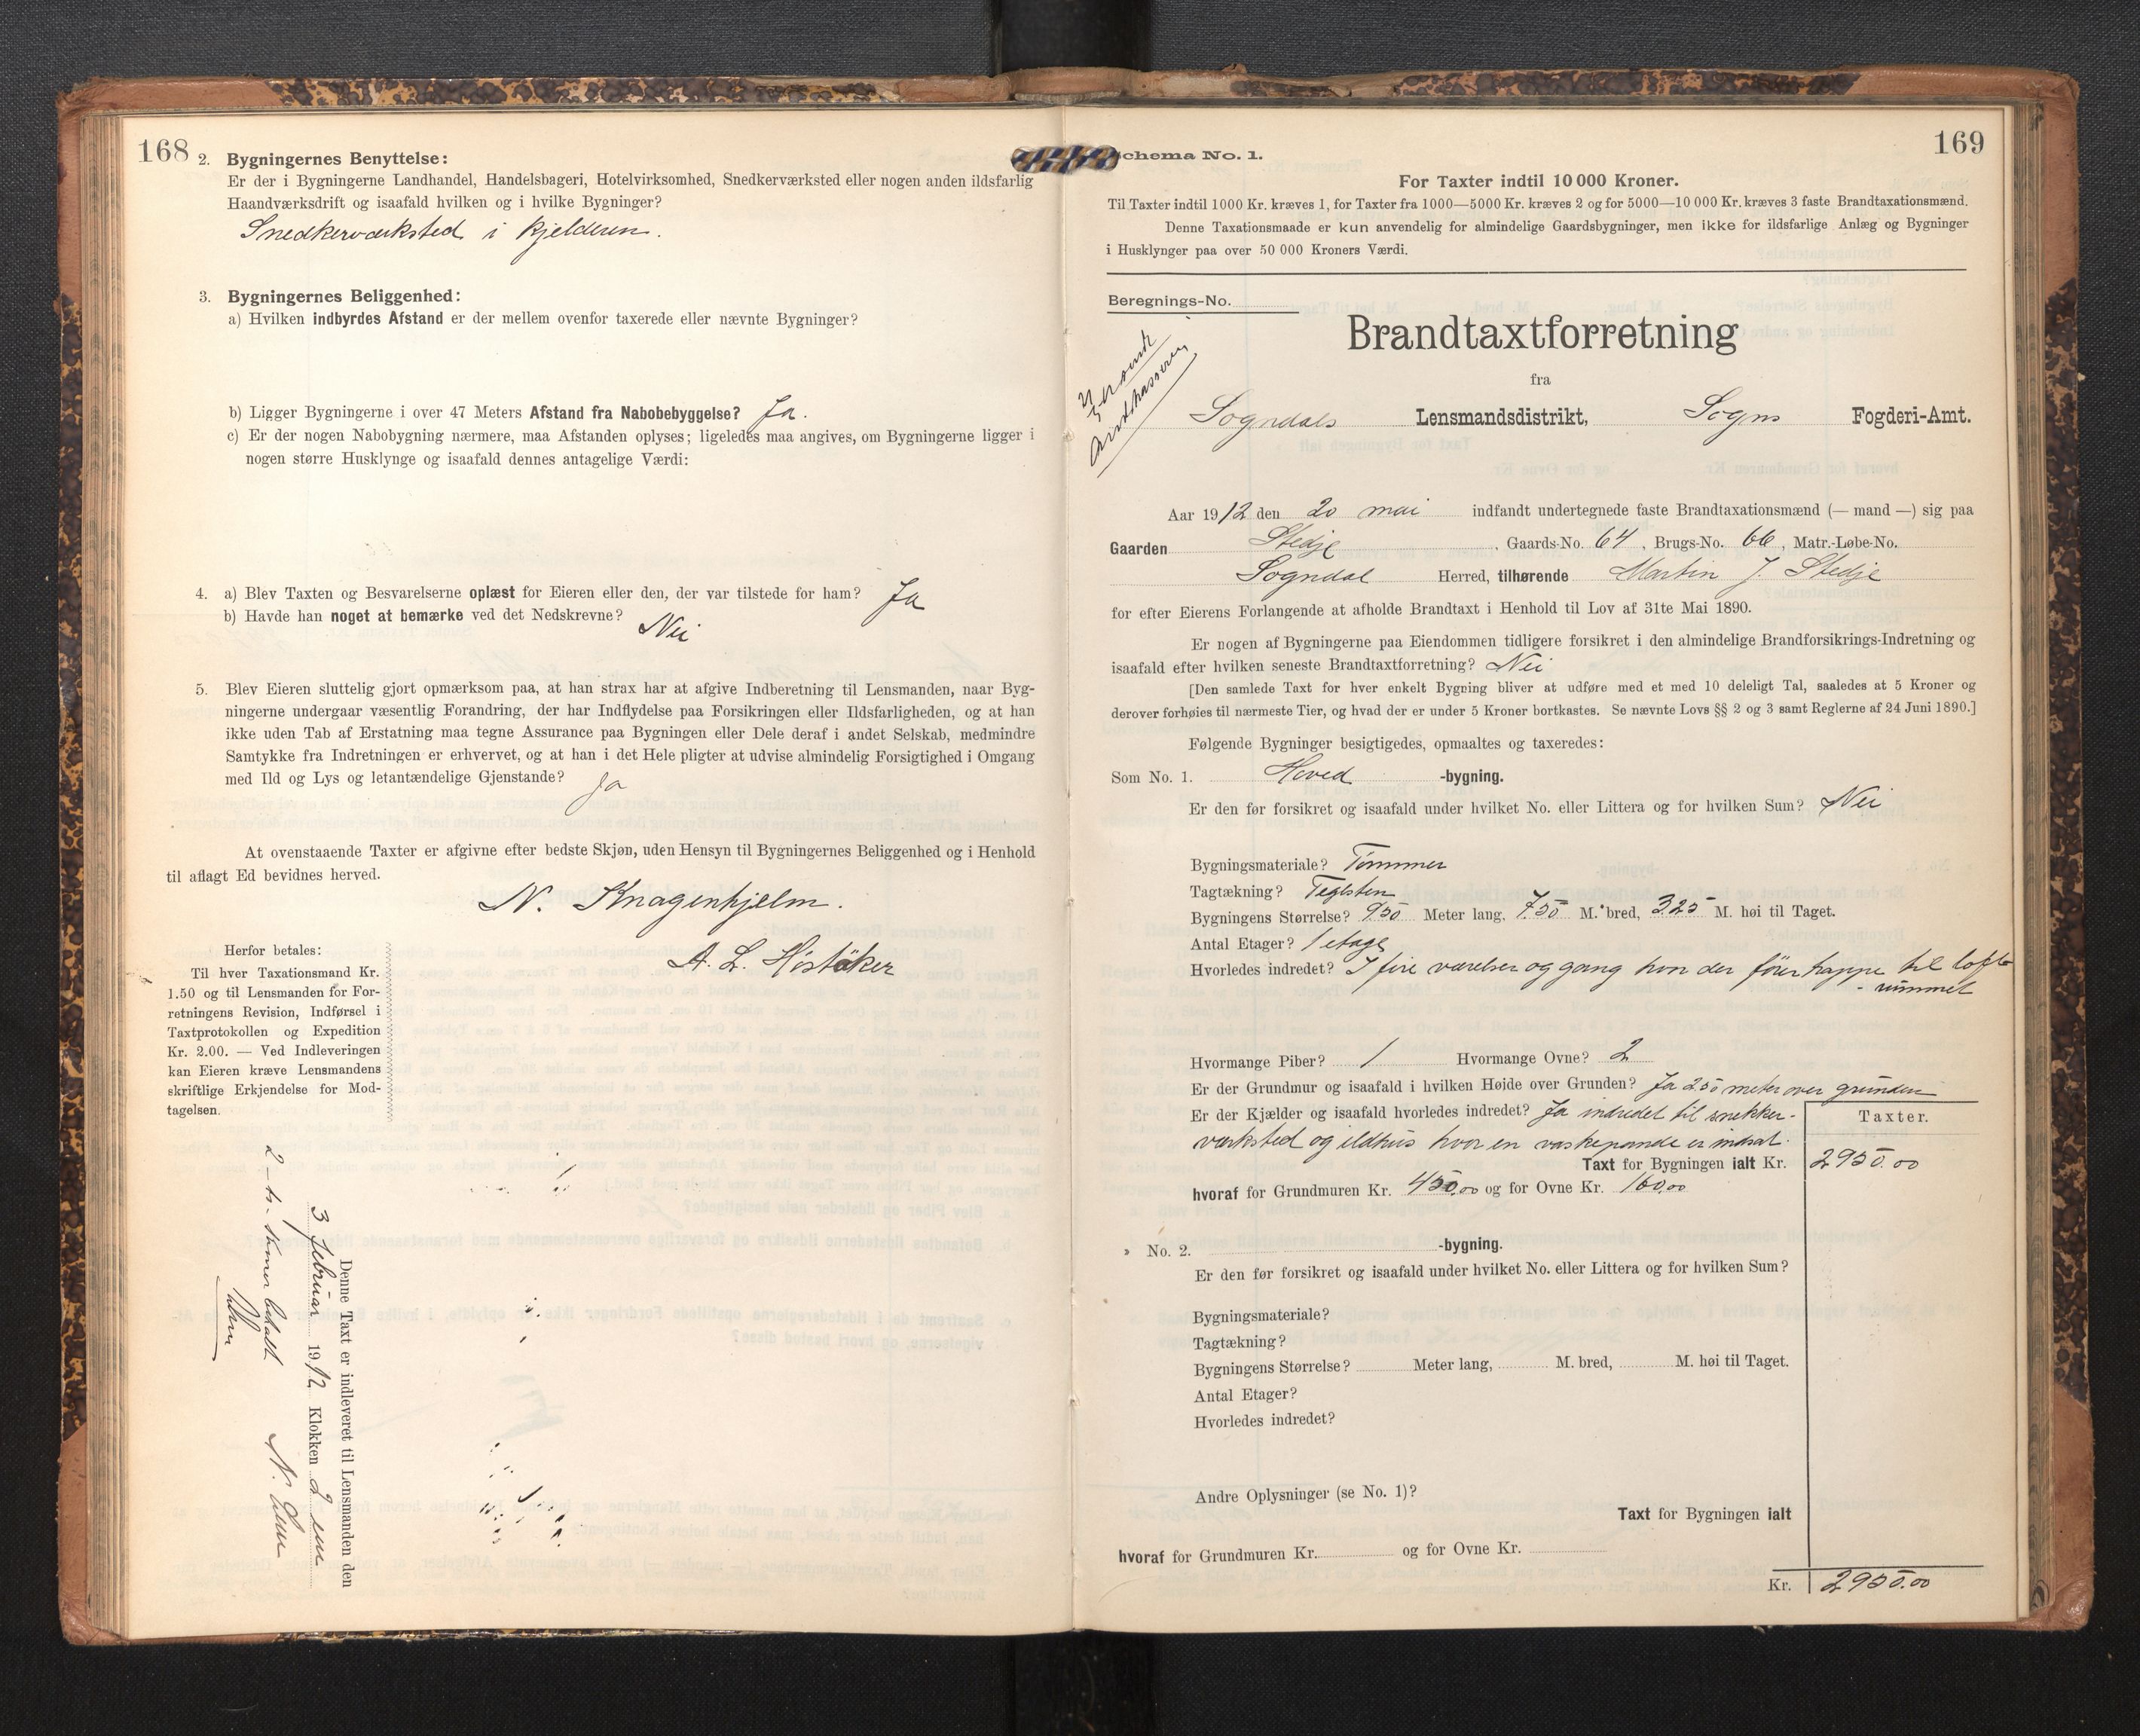 168
2. Bygningernes Benyttelse:
Er der i Bygningerne Landhandel, Handelsbageri, Hotelvirksomhed, Snedkerværksted eller nogen anden ildsfarlig
Haandværksdrift og isaafald hvilken og i hvilke Bygninger?
Snedkerværksted i kjelderen.
3. Bygningernes Beliggenhed:
a) Hvilken indbyrdes Afstand er der mellem ovenfor taxerede eller nævnte Bygninger?
b) Ligger Bygningerne i over 47 Meters Afstand fra Nabobebyggelse? Ja.
c) Er der nogen Nabobygning nærmere, maa Afstanden oplyses; ligeledes maa angives, om Bygningerne ligger i
nogen større Husklynge og isaafald dennes antagelige Værdi:
4. a) Blev Taxten og Besvarelserne oplæst for Eieren eller den, der var tilstede for ham? Ja
b) Havde han noget at bemærke ved det Nedskrevne? Nei
5. Blev Eieren sluttelig gjort opmærksom paa, at han strax har at afgive Indberetning til Lensmanden, naar Byg-
ningerne undergaar væsentlig Forandring, der har Indflydelse paa Forsikringen eller Ildsfarligheden, og at han
ikke uden Tab af Erstatning maa tegne Assurance paa Bygningen eller Dele deraf i andet Selskab, medmindre
Samtykke fra Indretningen er erhvervet, og at han i det Hele pligter at udvise almindelig Forsigtighed i Omgang
med Ild og Lys og letantændelige Gjenstande? Ja
At ovenstaaende Taxter er afgivne efter bedste Skjøn, uden Hensyn til Bygningernes Beliggenhed og i Henhold
til aflagt Ed bevidnes herved.
N. Knagenhjelm.
A. L. Høståker
Herfor betales:
Til hver Taxationsmand Kr.
1.50 og til Lensmanden for For-
retningens Revision, Indførsel i
Taxtprotokollen og Expedition
Kr. 2.00. — Ved Indleveringen
kan Eieren kræve Lensmandens
skriftlige Erkjendelse for Mod-
tagelsen.
Denne Taxt er indleveret til Lensmanden den
3 februar 1912 Klokken 2
2 - to - kroner betalt
Schema No. 1.
169
For Taxter indtil 10 000 Kroner.
Til Taxter indtil 1000 Kr. kræves 1, for Taxter fra 1000—5000 Kr. kræves 2 og for 5000—10 000 Kr. kræves 3 faste Brandtaxationsmænd.
Denne Taxationsmaade er kun anvendelig for almindelige Gaardsbygninger, men ikke for ildsfarlige Anlæg og Bygninger
i Husklynger paa over 50 000 Kroners Værdi.
Beregnings-No.
Brandtaxtforretning
fra
Sogndals Lensmandsdistrikt, Sogns Fogderi-Amt.
Aar 1912 den 20 mai indfandt undertegnede faste Brandtaxationsmænd (— mand —) sig paa
Gaarden Stedje, Gaards-No. 64, Brugs-No. 66, Matr.-Løbe-No.
Sogndal Herred, tilhørende Martin J. Stedje
for efter Eierens Forlangende at afholde Brandtaxt i Henhold til Lov af 31te Mai 1890.
Er nogen af Bygningerne paa Eiendommen tidligere forsikret i den almindelige Brandforsikrings-Indretning og
isaafald efter hvilken seneste Brandtaxtforretning? Nei
[Den samlede Taxt for hver enkelt Bygning bliver at udføre med et med 10 deleligt Tal, saaledes at 5 Kroner og
derover forhøies til nærmeste Tier, og hvad der er under 5 Kroner bortkastes. Se nævnte Lovs §§ 2 og 3 samt Reglerne af 24 Juni 1890.]
Følgende Bygninger besigtigedes, opmaaltes og taxeredes:
Som No. 1. Hoved -bygning.
Er den før forsikret og isaafald under hvilket No. eller Littera og for hvilken Sum? Nei
Bygningsmateriale? Tømmer
Tagtækning? Teglsten
Bygningens Størrelse? 9,50 Meter lang, 7,50 M. bred, 3,25 M. høi til Taget.
Antal Etager? 1 etage
Hvorledes indredet? I fire værelser og gang hvor der fører trappe til lofts-
rummet
Hvormange Piber? 1 Hvormange Ovne? 2
Er der Grundmur og isaafald i hvilken Høide over Grunden? Ja 2,50 meter over grunden
Er der Kjælder og isaafald hvorledes indredet? Ja indredet til snekker-
værksted og ildhus hvor en vaskepande er indsat.
Taxter.
Taxt for Bygningen ialt Kr. 2950.00
hvoraf for Grundmuren Kr. 450,00 og for Ovne Kr. 160,00
» No. 2. -bygning.
Er den før forsikret og isaafald under hvilket No. eller Littera og for hvilken Sum?
Bygningsmateriale?
Tagtækning?
Bygningens Størrelse? Meter lang, M. bred, M. høi til Taget.
Antal Etager?
Hvorledes indredet?
Andre Oplysninger (se No. 1)?
Taxt for Bygningen ialt
hvoraf for Grundmuren Kr. og for Ovne Kr.
Kr. 2950.00